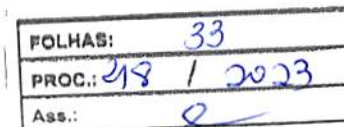 FOLHAS: 33
PROC.: 418 / 2023
Ass.: